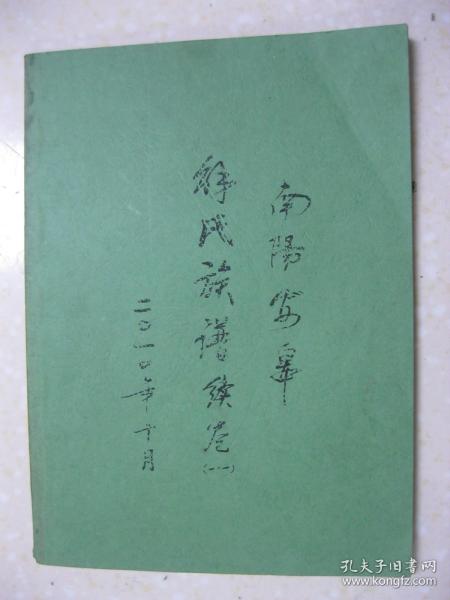 南陽安皋
解氏族譜續卷(一)
二〇一〇年十月
孔夫子旧书网
www.kongfz.com